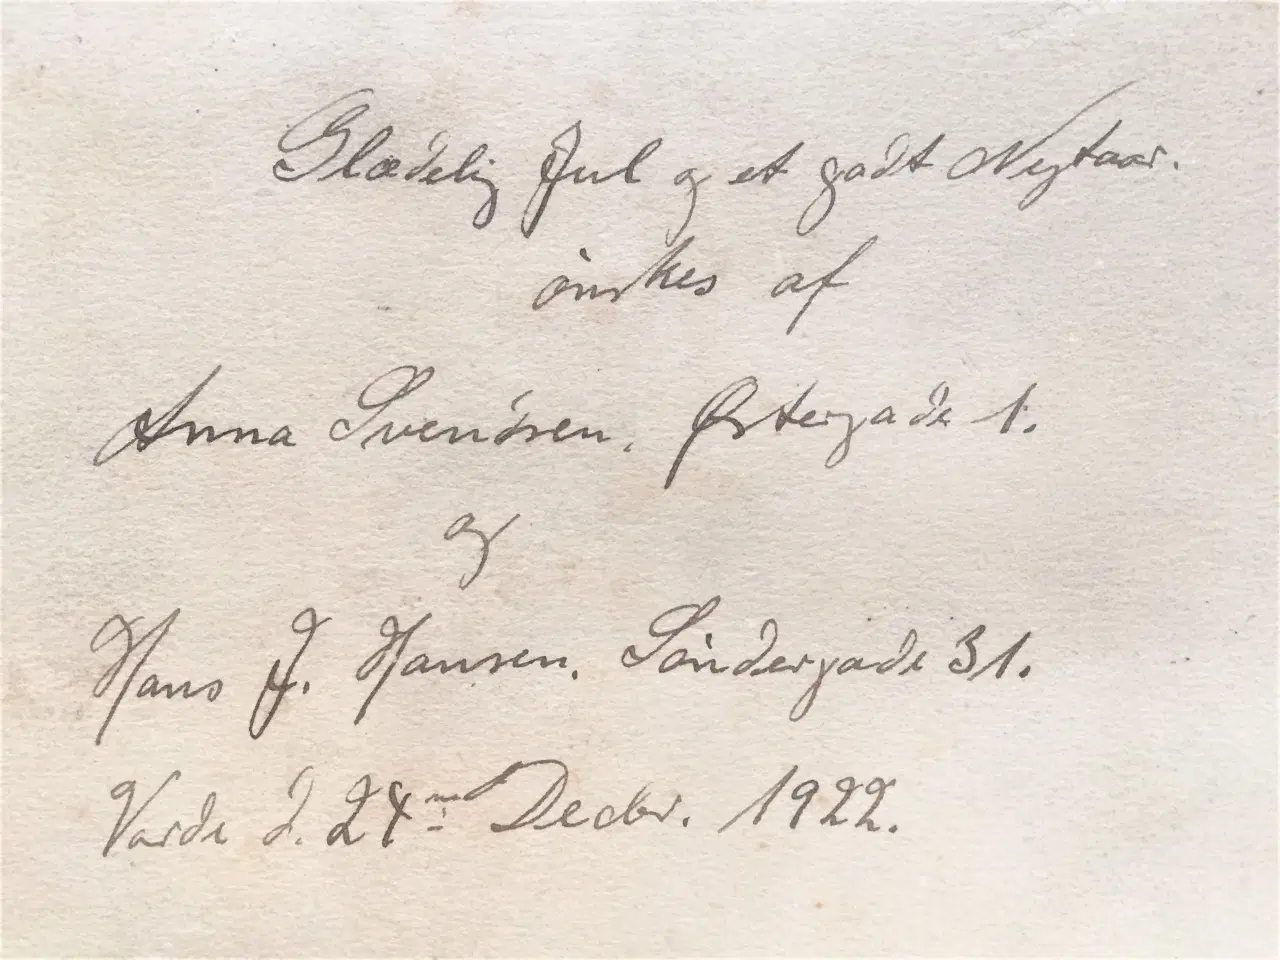 Glædelig Jul og et godt Nytaar.
önskes af
Anna Svendsen. Østergade 1.
og
Hans J. Hansen. Söndergade 31.
Varde d. 24 Decbr. 1922.